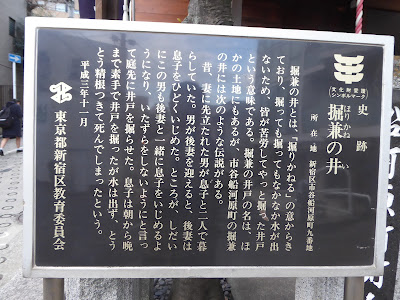 文化財愛護
シンボルマーク
史跡
ほりがねのい
掘兼の井
所在地 新宿区市谷船河原町九番地
掘兼の井とは、「掘りかねる」の意からき
ており、掘っても掘ってもなかなか水が出
ないため、皆が苦労してやっと掘った井戸
という意味である。掘兼の井戸の名は、ほ
かの土地にもあるが、市谷船河原町の掘兼
の井には次のような伝説がある。
昔、妻に先立たれた男が息子と二人で暮
らしていた。男が後妻を迎えると、後妻は
息子をひどくいじめた。ところが、しだい
にこの男も後妻と一緒に息子をいじめるよ
うになり、いたずらをしないようにと言っ
て庭先に井戸を掘らせた。息子は朝から晩
まで素手で井戸を掘ったが水は出ず、とう
とう精根つきて死んでしまったという。
平成三年十一月
東京都新宿区教育委員会